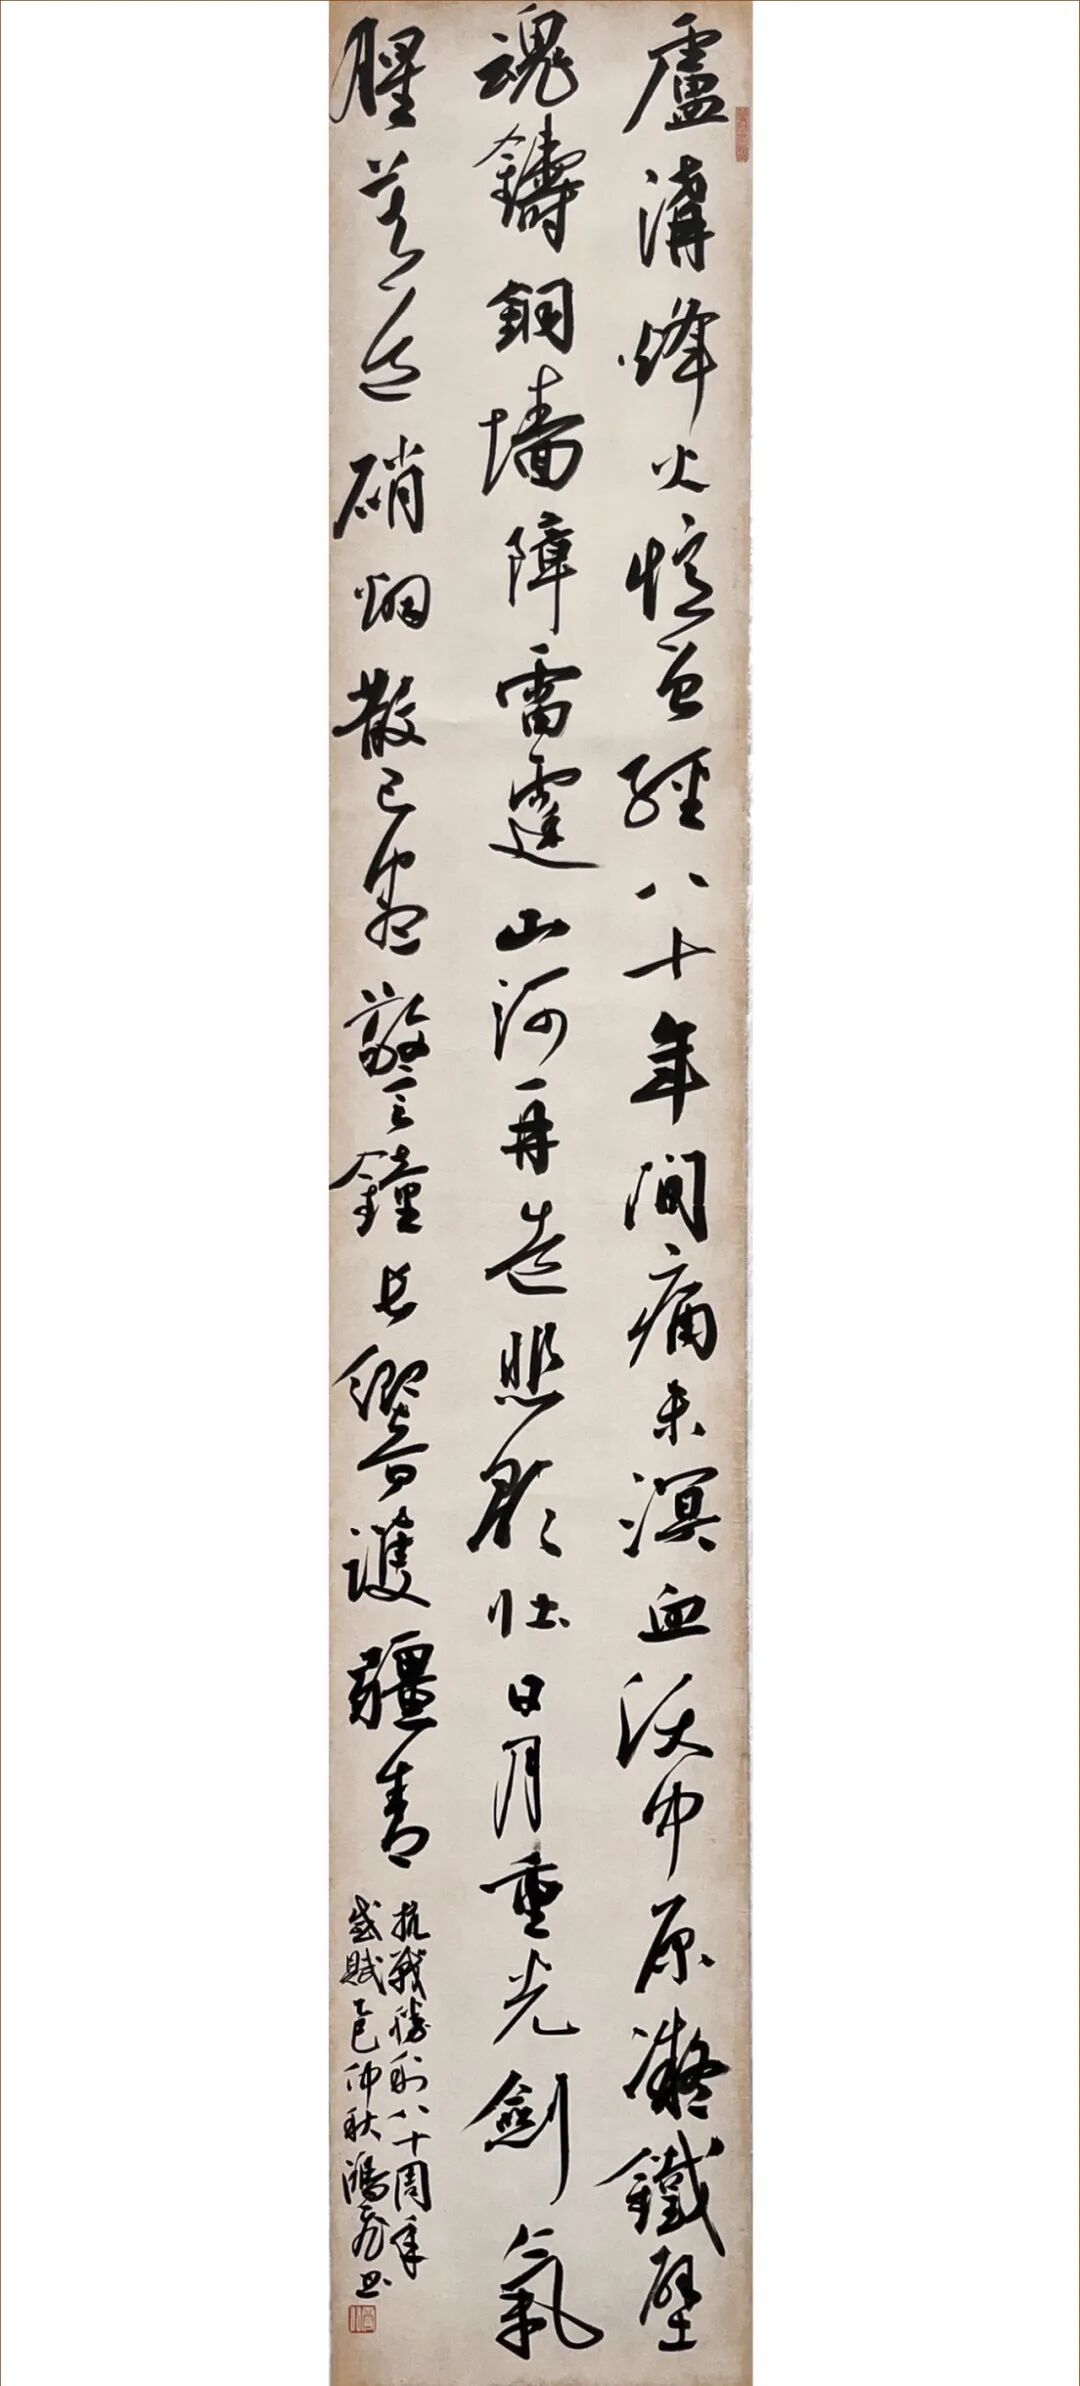 盧溝烽火憶曾經八十年間痛未溟血沃中原凝鐵壁
魂鑄銅墙障雷霆山河再造悲歌壯日月重光劍氣
腥莫道硝烟散已盡警鐘長響護疆青
抗戰勝利八十周年
感賦乙巳仲秋鴻飛書